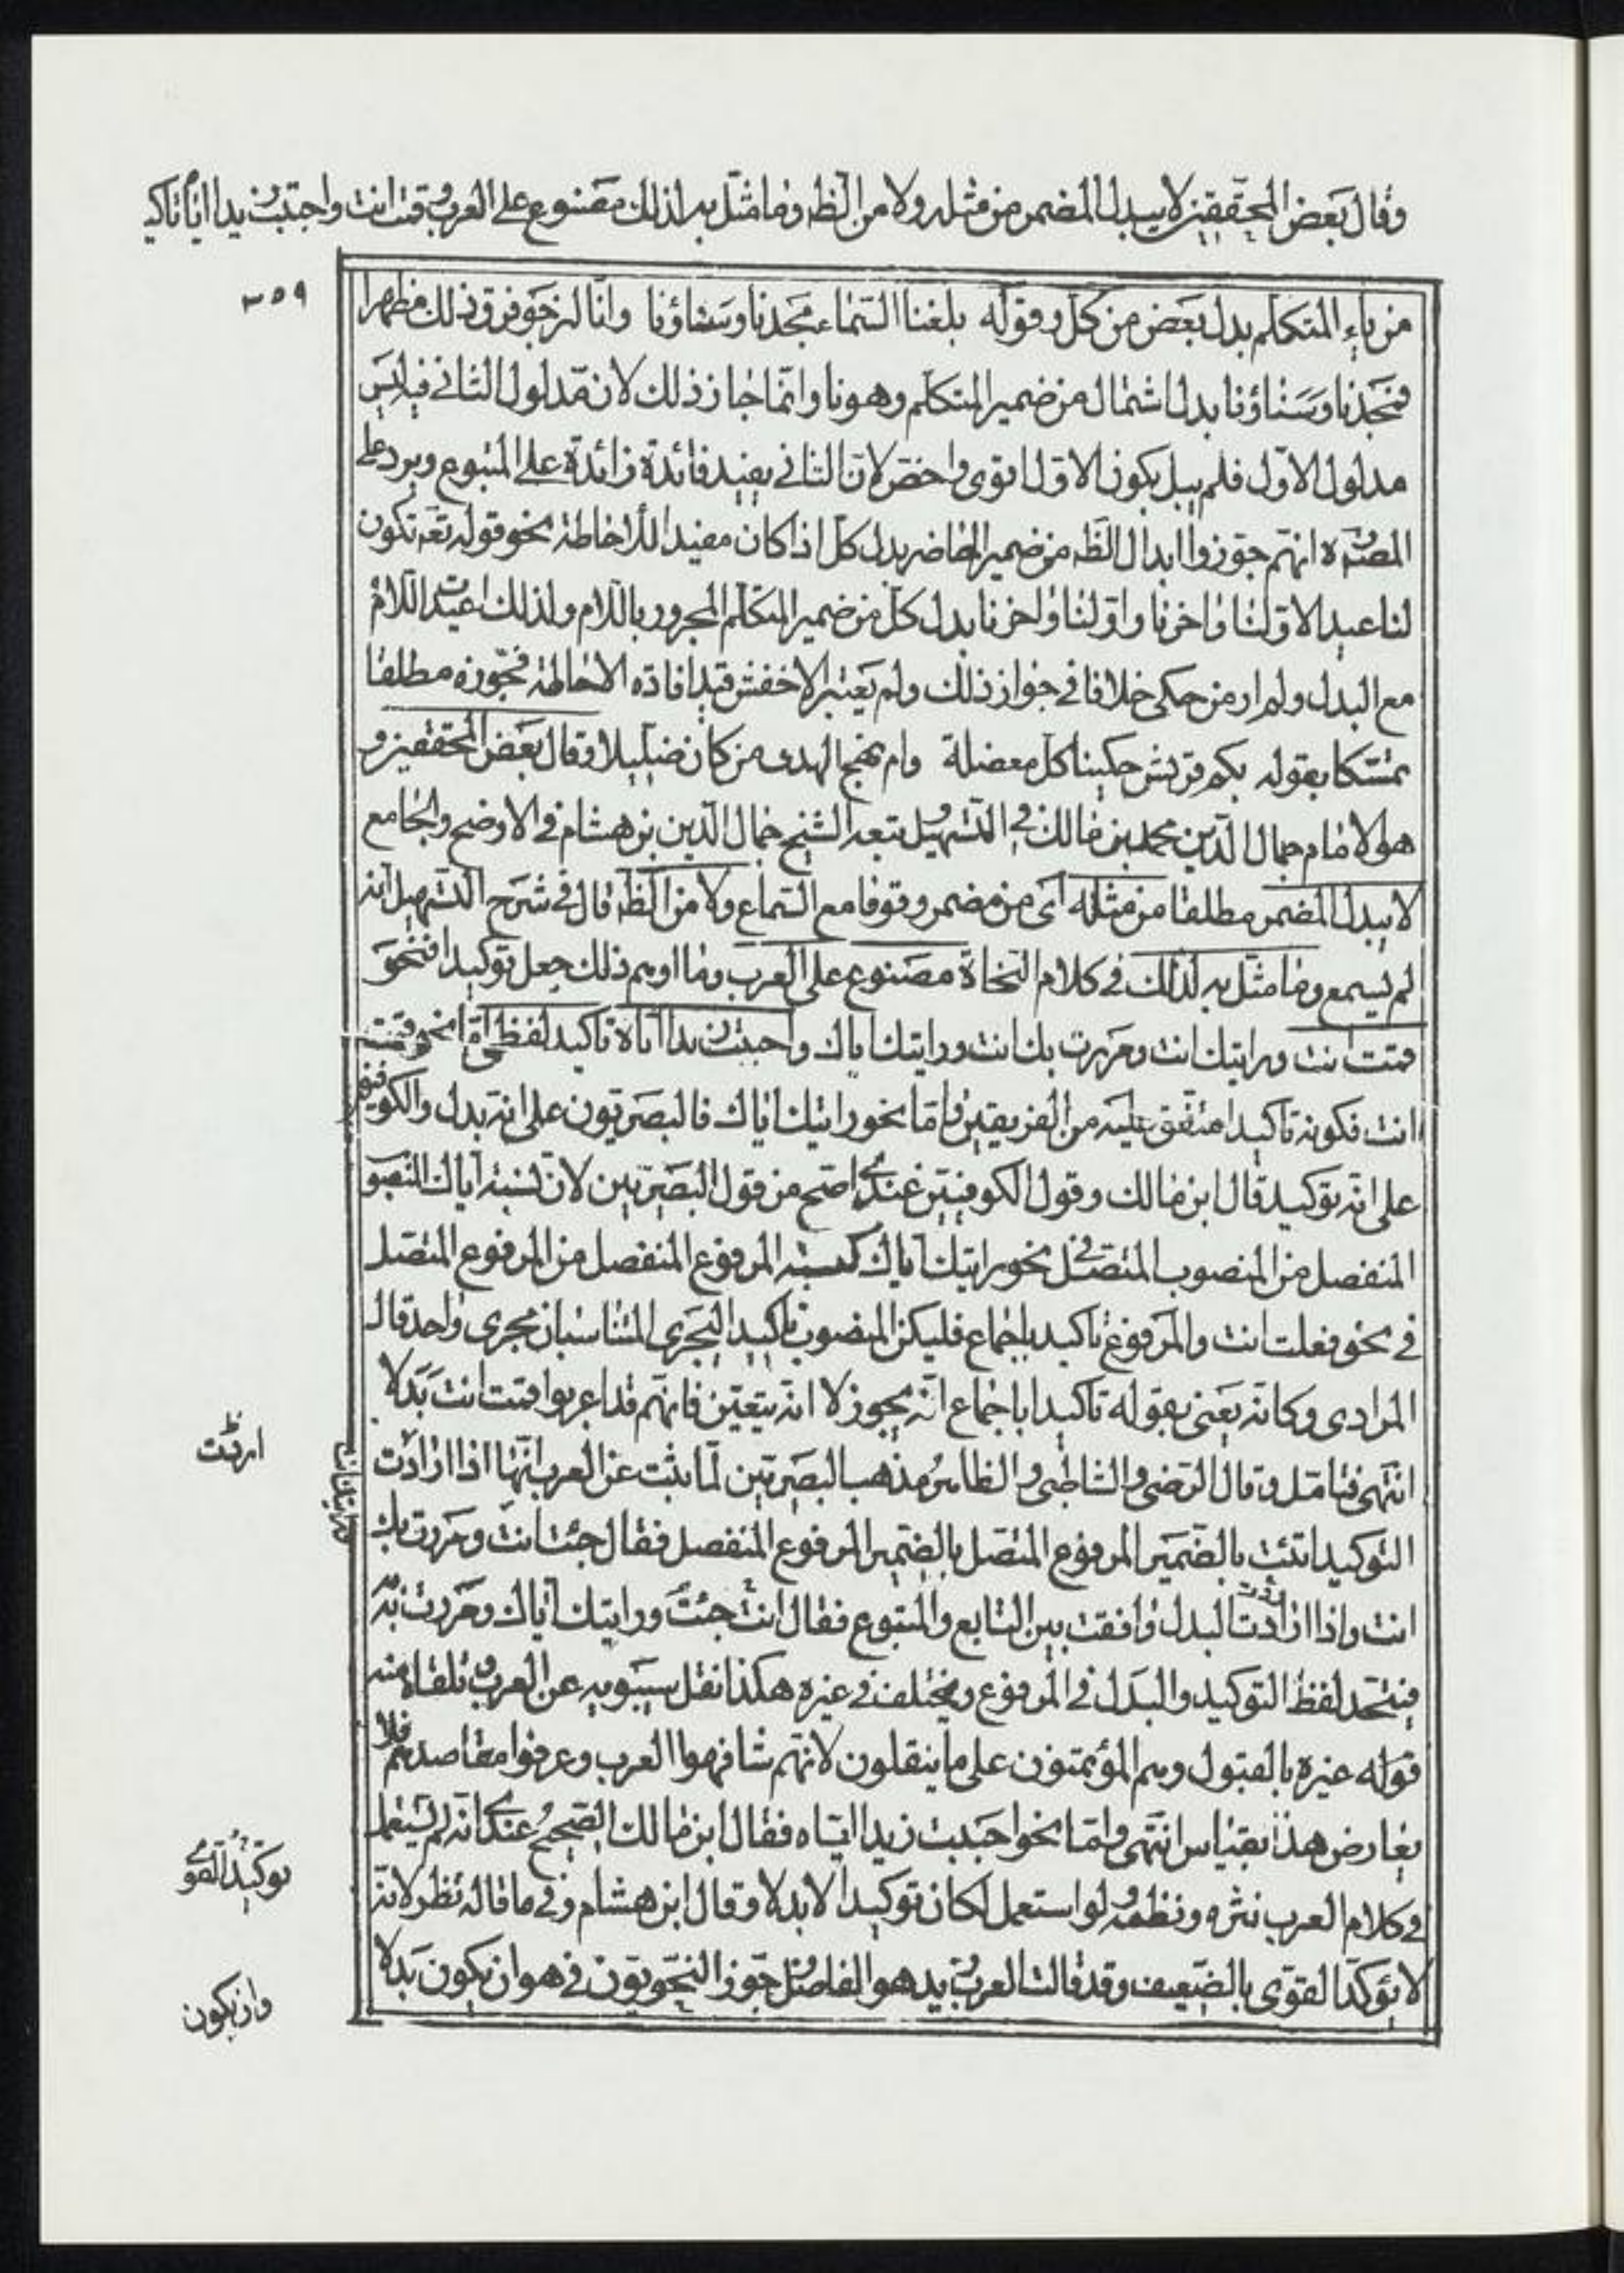 وقال بعض المحققين لا يبدل المضمر من مثله ولا من الظه وما مثل به لذلك مصنوع على العرب وقمت انت واجتبت زيدا اياه تاكيد
٣٥٩
من ياء المتكلم بدل بعض من كل وقوله بلغنا السماء مجدنا وسناؤنا وانا لنرجو فوق ذلك مظهرا
فمجدنا وسناؤنا بدل اشتمال من ضمير المتكلم وهو نا وانما جاز ذلك لان مدلول الثاني فيه ليس
مدلول الاول فلم يكون الاول اقوى واخص لان الثاني يفيد فائدة زائدة على المتبوع ويرد على
المص ره انهم جوزوا ابدال الظه من ضمير الحاضر بدل كل اذا كان مفيدا للاحاطة نحو قوله تعه تكون
لنا عيدا لاولنا واخرنا واولنا واخرنا بدل كل من ضمير المتكلم المجرور باللام ولذلك اعيدت اللام
مع البدل ولم ار من حكى خلافا في جواز ذلك ولم يعتبر الاخفش قيد افادة الاحاطة فجوزه مطلقا
تمسكا بقوله بكم قريش كفينا كل معضلة وام نهج الهدى من كان ضليلا وقال بعض المحققين و
هو الامام جمال الدين محمد بن مالك في التسهيل وتبعه الشيخ جمال الدين بن هشام في الاوضح والجامع
لا يبدل المضمر مطلقا من مثله اى من مضمر وقوفا مع السماع ولا من الظه قال في شرح التسهيل انه
لم يسمع وما مثل به لذلك في كلام النحاة مصنوع على العرب وما اوهم ذلك جعل توكيدا فنحو
قمت انت ورايتك انت ومررت بك انت ورايتك اياك واجتبت زيدا اياه تاكيد لفظي اما نحو قمت
انت فكونه تاكيدا متفق عليه من الفريقين واما نحو رايتك اياك فالبصريون على انه بدل والكوفيون
على انه توكيد قال ابن مالك وقول الكوفيين عندي اصح من قول البصريين لان نسبة اياك المنصوب
المنفصل من المنصوب المتصل في نحو رايتك اياك كنسبة المرفوع المنفصل من المرفوع المتصل
في نحو فعلت انت والمرفوع تاكيد باجماع فليكن المنصوب تاكيدا ليجرى المتناسبان مجرى واحد قال
المرادى وكانه يعنى بقوله تاكيدا باجماع انه يجوز لا انه يتعين فانهم قد اعربوا قمت انت بدلا
انتهى فتامل وقال الرضى والشاطبى والظاهر مذهب البصريين لما ثبت عن العرب انها اذا ارادت
التوكيد اتت بالضمير المرفوع المتصل بالضمير المرفوع المنفصل فقال جئت انت ومررت بك
انت واذا ارادت البدل وافقت بين التابع والمتبوع فقال انت جئت ورايتك اياك ومررت به
فيتحد لفظ التوكيد والبدل في المرفوع ويختلف في غيره هكذا نقل سيبويه عن العرب وتلقاه منه
قوله غيره بالقبول وهم المؤتمنون على ما ينقلون لانهم شافهوا العرب وعرفوا مقاصدهم فلا
يعارض هذا بقياس انتهى واما نحوا جبت زيدا اياه فقال ابن مالك الصحيح عندي انه لم يستعمل
في كلام العرب نثره ونظمه ولو استعمل لكان توكيدا لا بدلا وقال ابن هشام وفي ما قاله نظر لانه
لا يؤكد القوى بالضعيف وقد قالت العرب زيد هو الفاضل وجوز النحويون في هو ان يكون بدلا
اردت
توكيد القوى
وان يكون